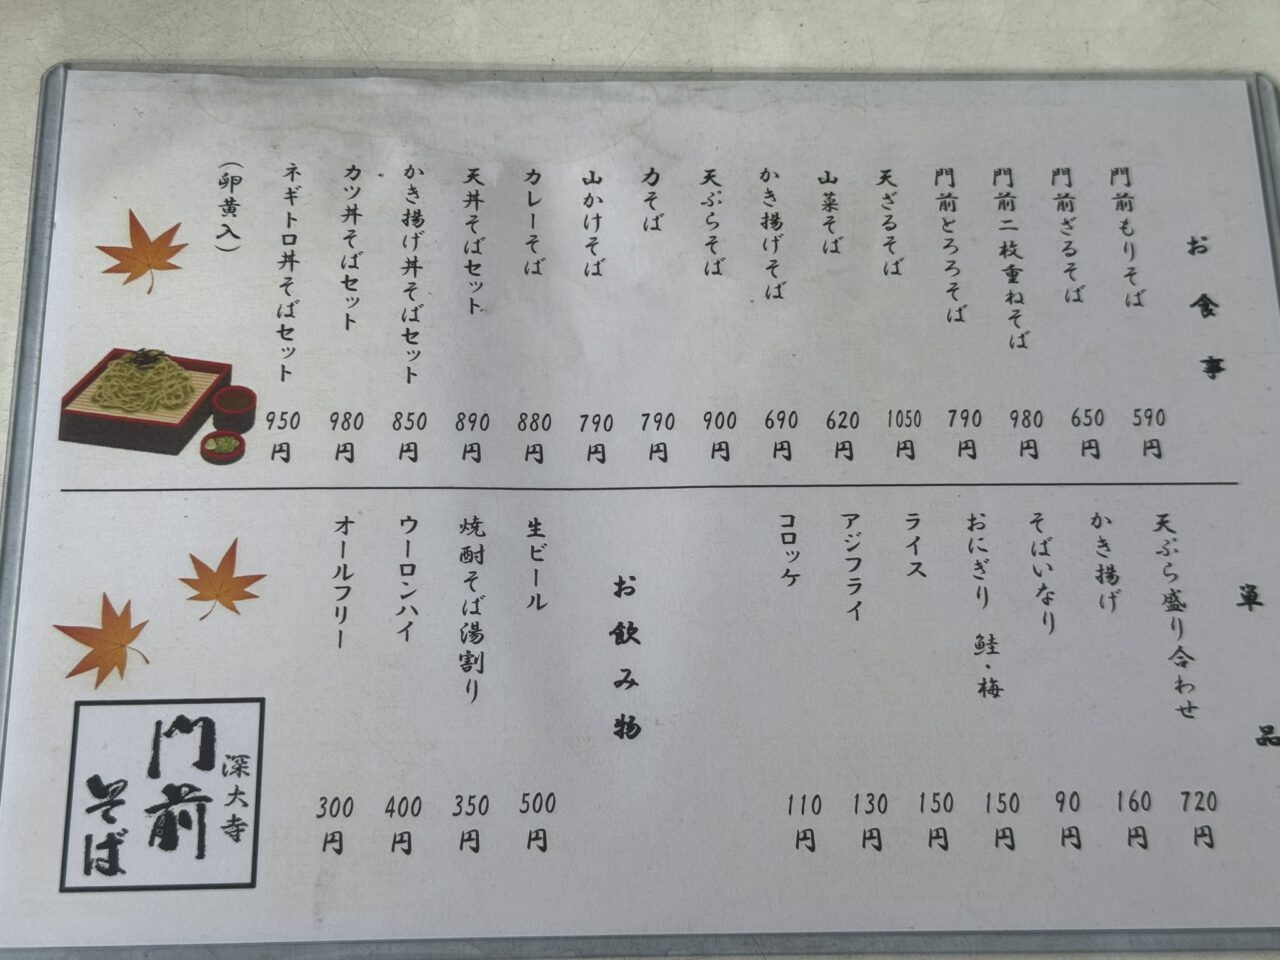 お食事
門前もりそば 590円
門前ざるそば 650円
門前二枚重ねそば 980円
門前とろろそば 790円
天ざるそば 1050円
山菜そば 620円
かき揚げそば 690円
天ぷらそば 900円
力そば 790円
山かけそば 790円
カレーそば 880円
天丼そばセット 890円
かき揚げ丼そばセット 850円
カツ丼そばセット 980円
ネギトロ丼そばセット 950円
(卵黄入)
単品
天ぷら盛り合わせ 720円
かき揚げ 160円
そばいなり 90円
おにぎり 鮭・梅 150円
ライス 150円
アジフライ 130円
コロッケ 110円
お飲み物
生ビール 500円
焼酎そば湯割り 350円
ウーロンハイ 400円
オールフリー 300円
深大寺
門前
そば